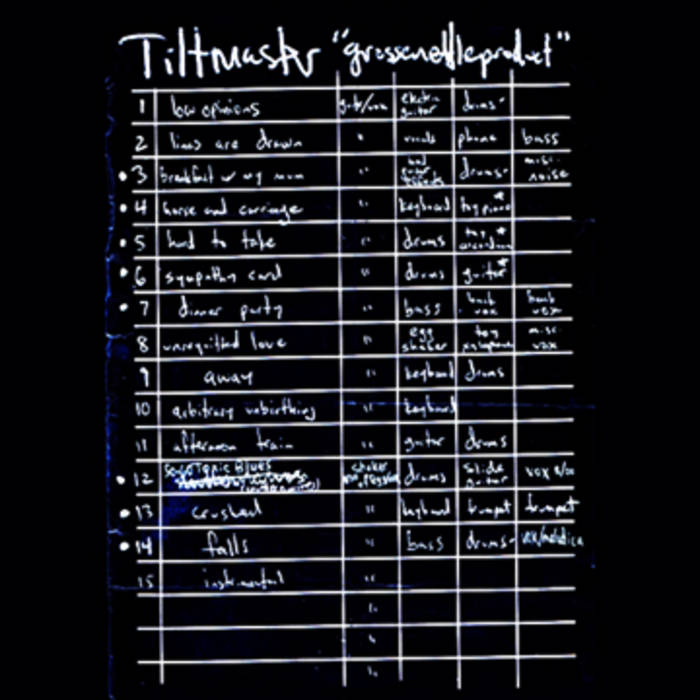 Tiltmastr "grossenettleproduct"
1 low opinions guitr/vox electric guitar drums
2 lines are drawn " vocals phone bass
3 breakfast w my mom " bad guitar drums misc. noise
4 horse and carriage " keyboard toy piano*
5 hard to take " drums toy accordion*
6 sympathy card " drums guitar*
7 dinner party " bass back vox back vox
8 unrequited love " egg shaker toy xylophone misc. vox
9 away " keyboard drums
10 arbitrary unbirthing " keyboard
11 afternoon train " guitar drums
12 Blues shaker drums slide guitar vox
13 crushed " keyboard trumpet trumpet
14 falls " bass drums vox/melodica
15 instrumental "
"
"
"